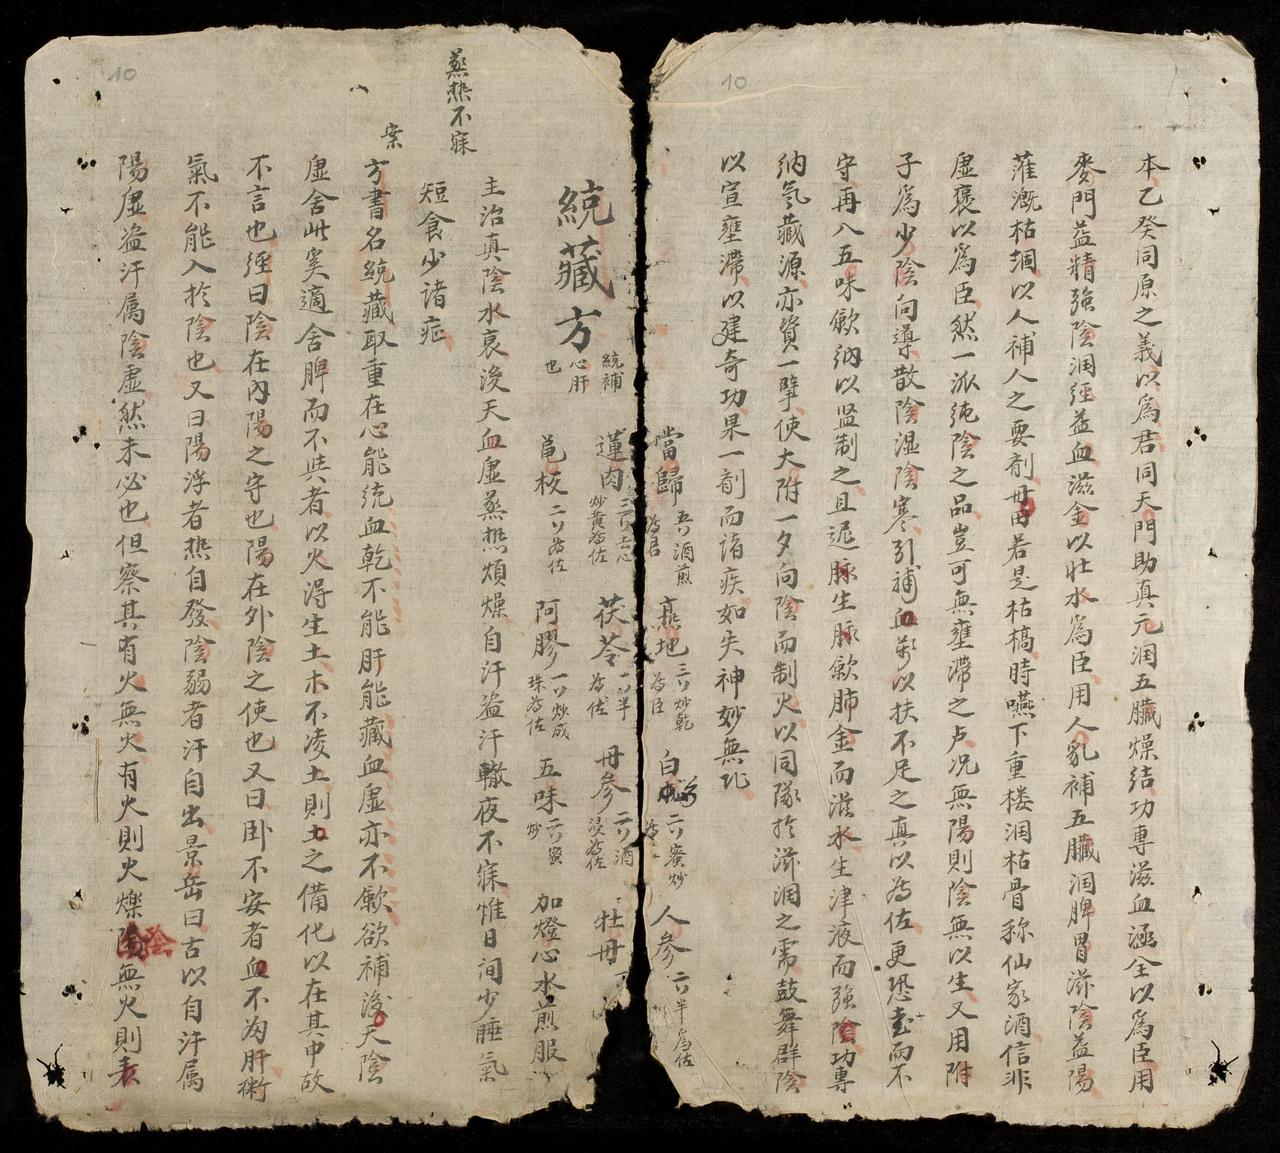 10
本乙癸同原之義以爲君同天門助真元润五臟燥结功專滋血涵全以爲臣用
麥門益精強陰润经益血滋金以壮水爲臣用人乳補五臟润脾胃滋陰益陽
薩溉枯涸以人補人之要剤毌田若是枯槁時嚥下重楼润枯骨称仙家酒信非
虚褒以爲臣然一派纯陰之品豈可無壅滞之卢况無陽則陰無以生又用附
子爲少陰向導散陰湿陰寒引補血薬以扶不足之真以為佐更恐走而不
守再入五味歛纳以监制之且逥脉生脉歛肺金而滋水生津液而強陰功專
纳氣藏源亦資一擘使大附一夕向陰而制火以同隊扵滋润之需鼓舞群陰
以宣壅滞以建奇功果一剤而诸疾如失神妙無比
當歸 五丷酒煎為君 熹地 三丷炒乾為臣 白 二丷蜜炒 人参 二丷半爲佐
10
蓮肉 去心炒黄為佐 茯苓 一丷半為佐 丹参 二丷酒浸為佐 牡丹
統藏方 統補心肝也 龟板 二丷為佐 阿膠 一丷炒成珠為佐 五味 二六蜜炒 加燈心水煎服
主治真陰水衰後天血虚蒸热煩燥自汗盗汗轍夜不寐惟日间少睡氣
蒸热不寐
短食少诸症
案
方書名統藏取重在心能统血乾不能肝能藏血虚亦不歛欲補後天陰
虚舍此奚適舍脾而不与者以火淂生土木不凌土則土之備化以在其中故
不言也经曰陰在內陽之守也陽在外陰之使也又曰卧不安者血不为肝衛
氣不能入扵陰也又曰陽浮者热自發陰弱者汗自出景岳曰古以自汗属
陽虚盗汗属陰虚然未必也但察其有火無火有火則火爍陰無火則表